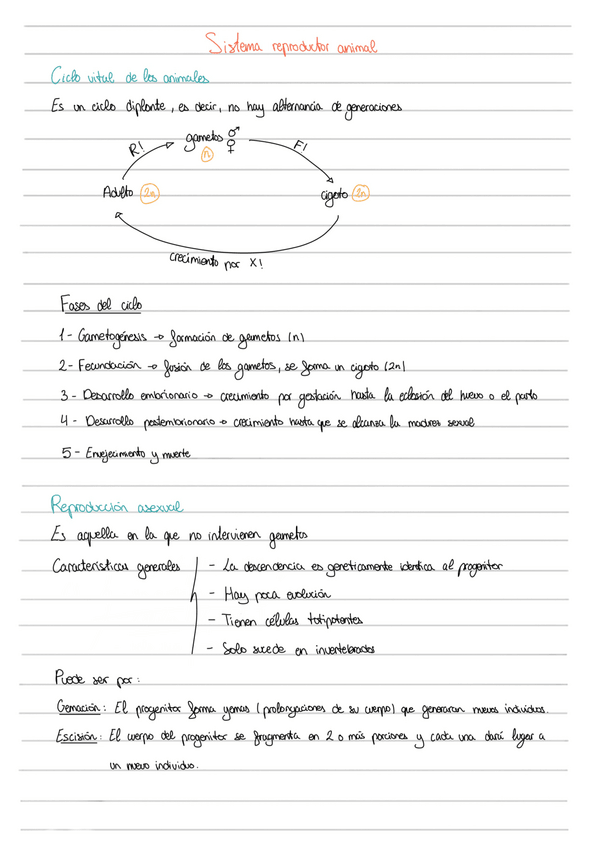 Sistema reproductor animal
Ciclo vital de los animales
Es un ciclo diplonte, es decir, no hay alternancia de generaciones
R!
gametos ♂♀
n
F!
Adulto 2n
cigoto 2n
crecimiento por X!
Fases del ciclo
1 - Gametogénesis → formación de gametos (n)
2 - Fecundación → fusión de los gametos, se forma un cigoto (2n)
3 - Desarrollo embrionario → crecimiento por gestación hasta la eclosión del huevo o el parto
4 - Desarrollo postembrionario → crecimiento hasta que se alcanza la madurez sexual
5 - Envejecimiento y muerte
Reproducción asexual
Es aquella en la que no intervienen gametos
Características generales
- La descendencia es genéticamente idéntica al progenitor
- Hay poca evolución
- Tienen células totipotentes
- Solo sucede en invertebrados
Puede ser por:
Gemación: El progenitor forma yemas (prolongaciones de su cuerpo) que generaran nuevos individuos.
Escisión: El cuerpo del progenitor se fragmenta en 2 o más porciones y cada una dará lugar a
un nuevo individuo.